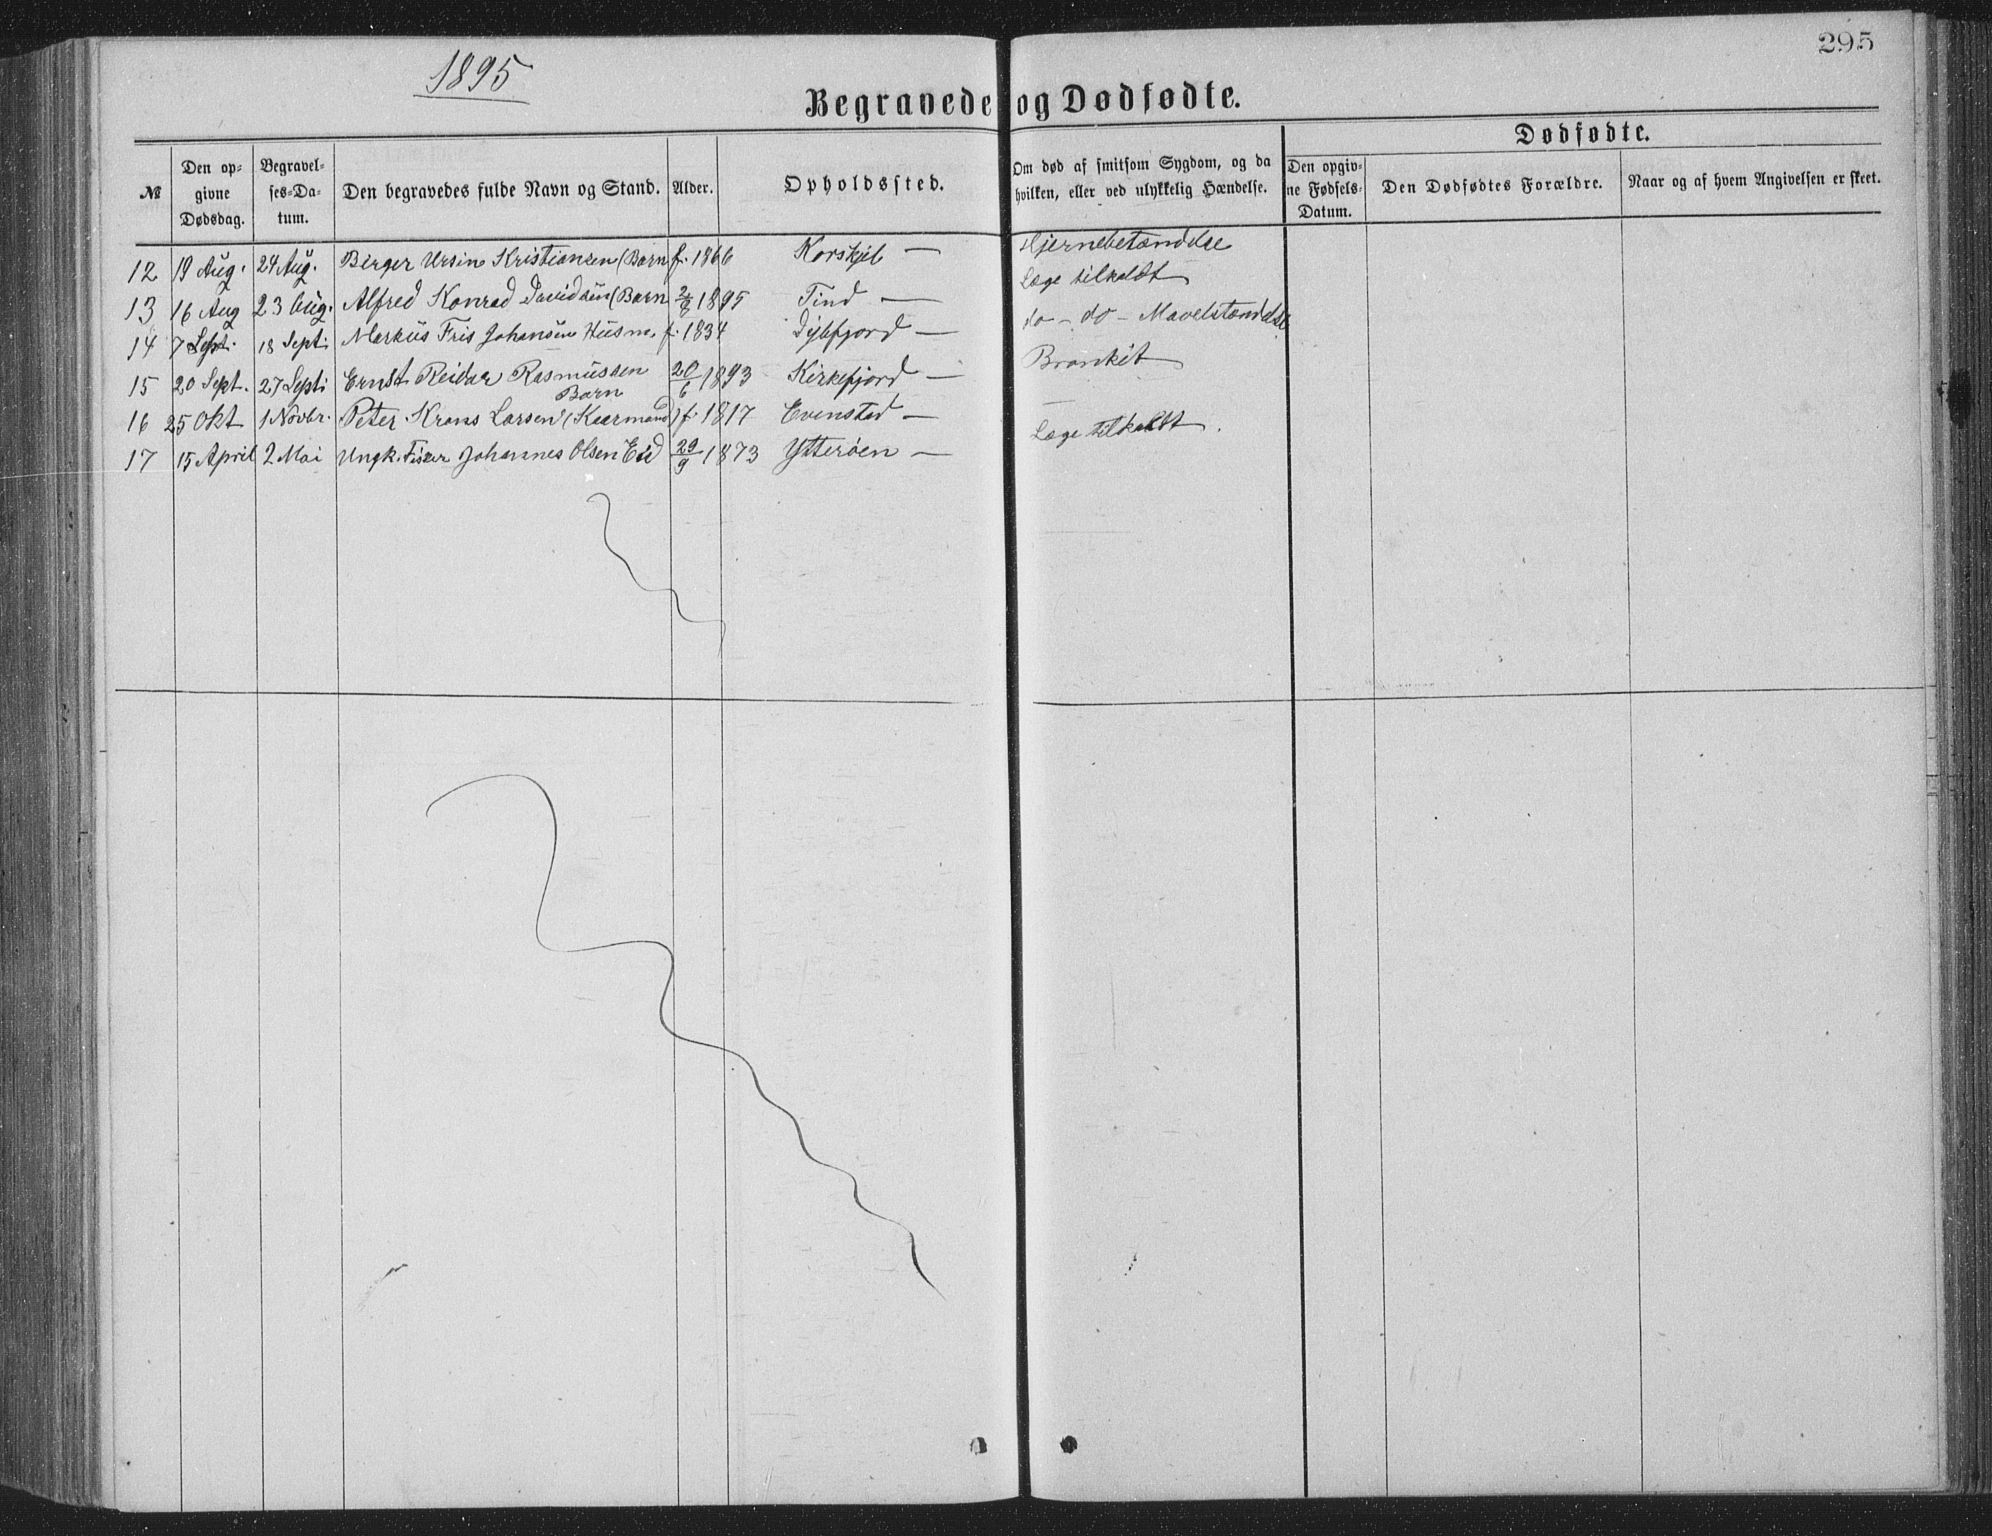 1895
295
Begravede og Dødfødte.
Dødfødte.
№ Den opgivne Dødsdag. Begravelses-Datum. Den begravedes fulde Navn og Stand. Alder. Opholdssted. Om død af smitsom Sygdom, og da hvilken, eller ved ulykkelig Hændelse. Den opgivne Fødsels-Datum. Den Dødfødtes Forældre. Naar og af hvem Angivelsen er skeet.
12 19 Aug. 24 Aug. Birger Ursin Kristiansen (Barn f. 1866 — Hjernebetændelse
Læge tilkaldt
13 16 Aug 23 Aug. Alfred Konrad Davidsen (Barn 1895 Tind — do - do - Mavebetændelse
14 7 Sept. 18 Sept. Markus Fris Johansen Husm. f. 1834 Dybfjord —
15 20 Sept. 27 Sept. Ernst Reidar Rasmussen Barn 20/6 1893 Kirkefjord — Bronkit
16 25 Okt 1 Novbr. Peter Krans Larsen (Kaarmand) f. 1817 Evenstad —
17 15 April 2 Mai Ungk. Fisker Johannes Olsen Eid 29/9 1873 Ytterøen — Læge tilkaldt.